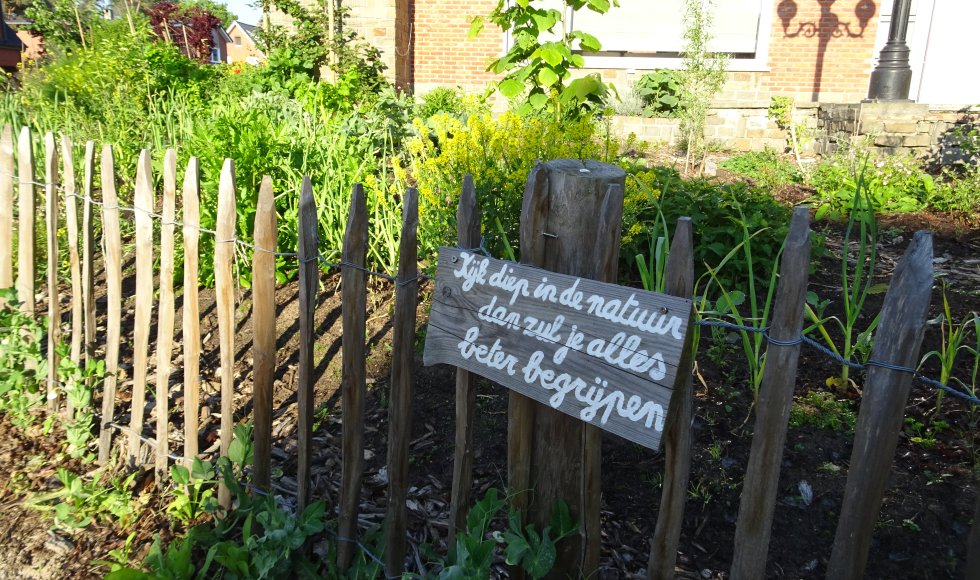 Kijk diep in de natuur
dan zul je alles
beter begrijpen